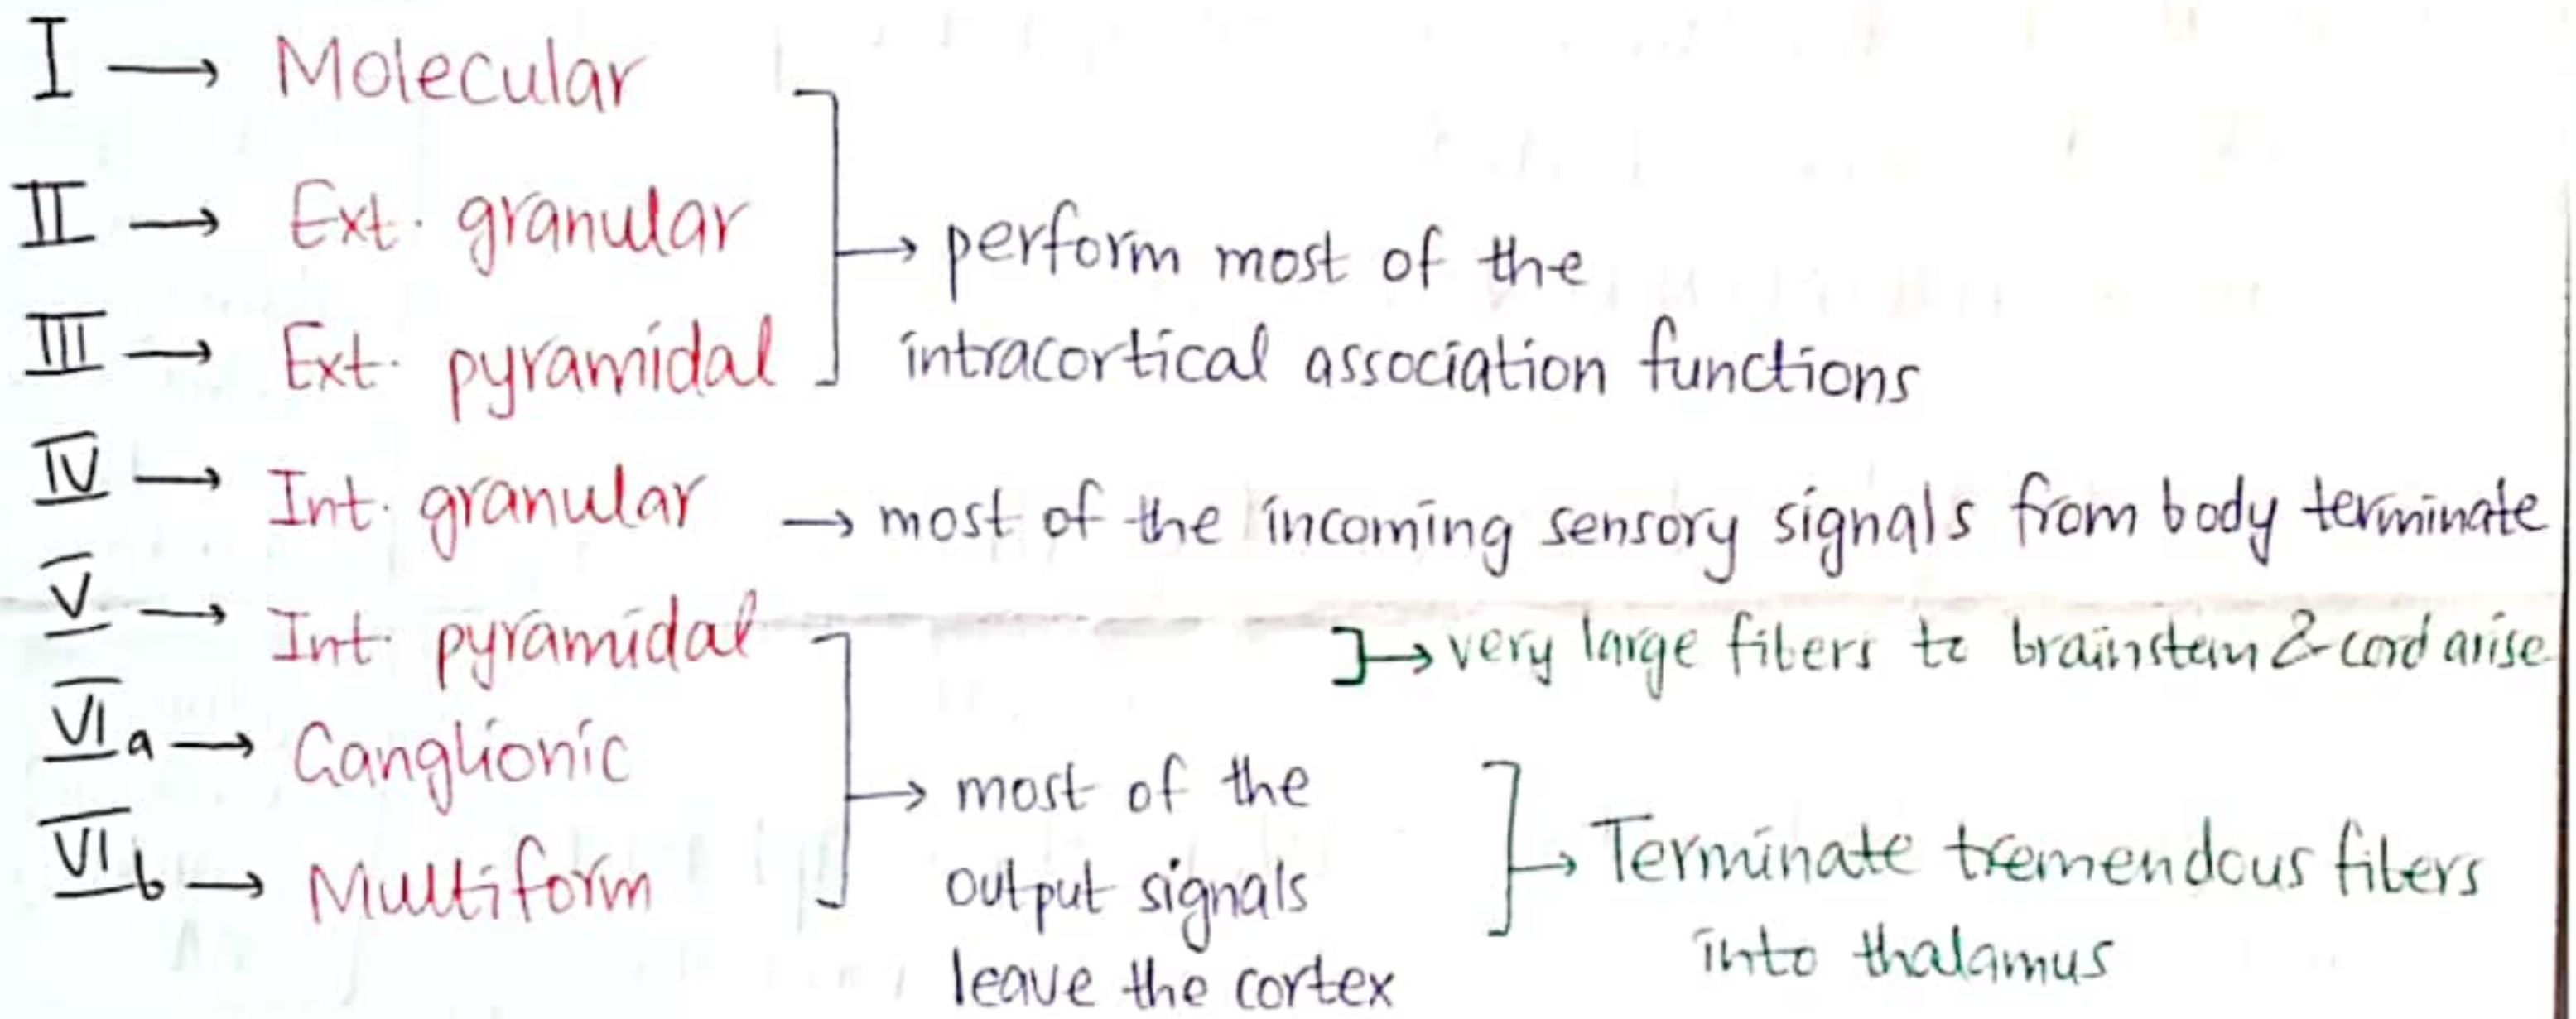 I → Molecular
II → Ext. granular
→ perform most of the
III → Ext. pyramidal
intracortical association functions
IV → Int. granular → most of the incoming sensory signals from body terminate
V → Int. pyramidal → very large fibers to brainstem & cord arise
VIa → Ganglionic
→ most of the
output signals
leave the cortex
VIb → Multiform
→ Terminate tremendous fibers
into thalamus